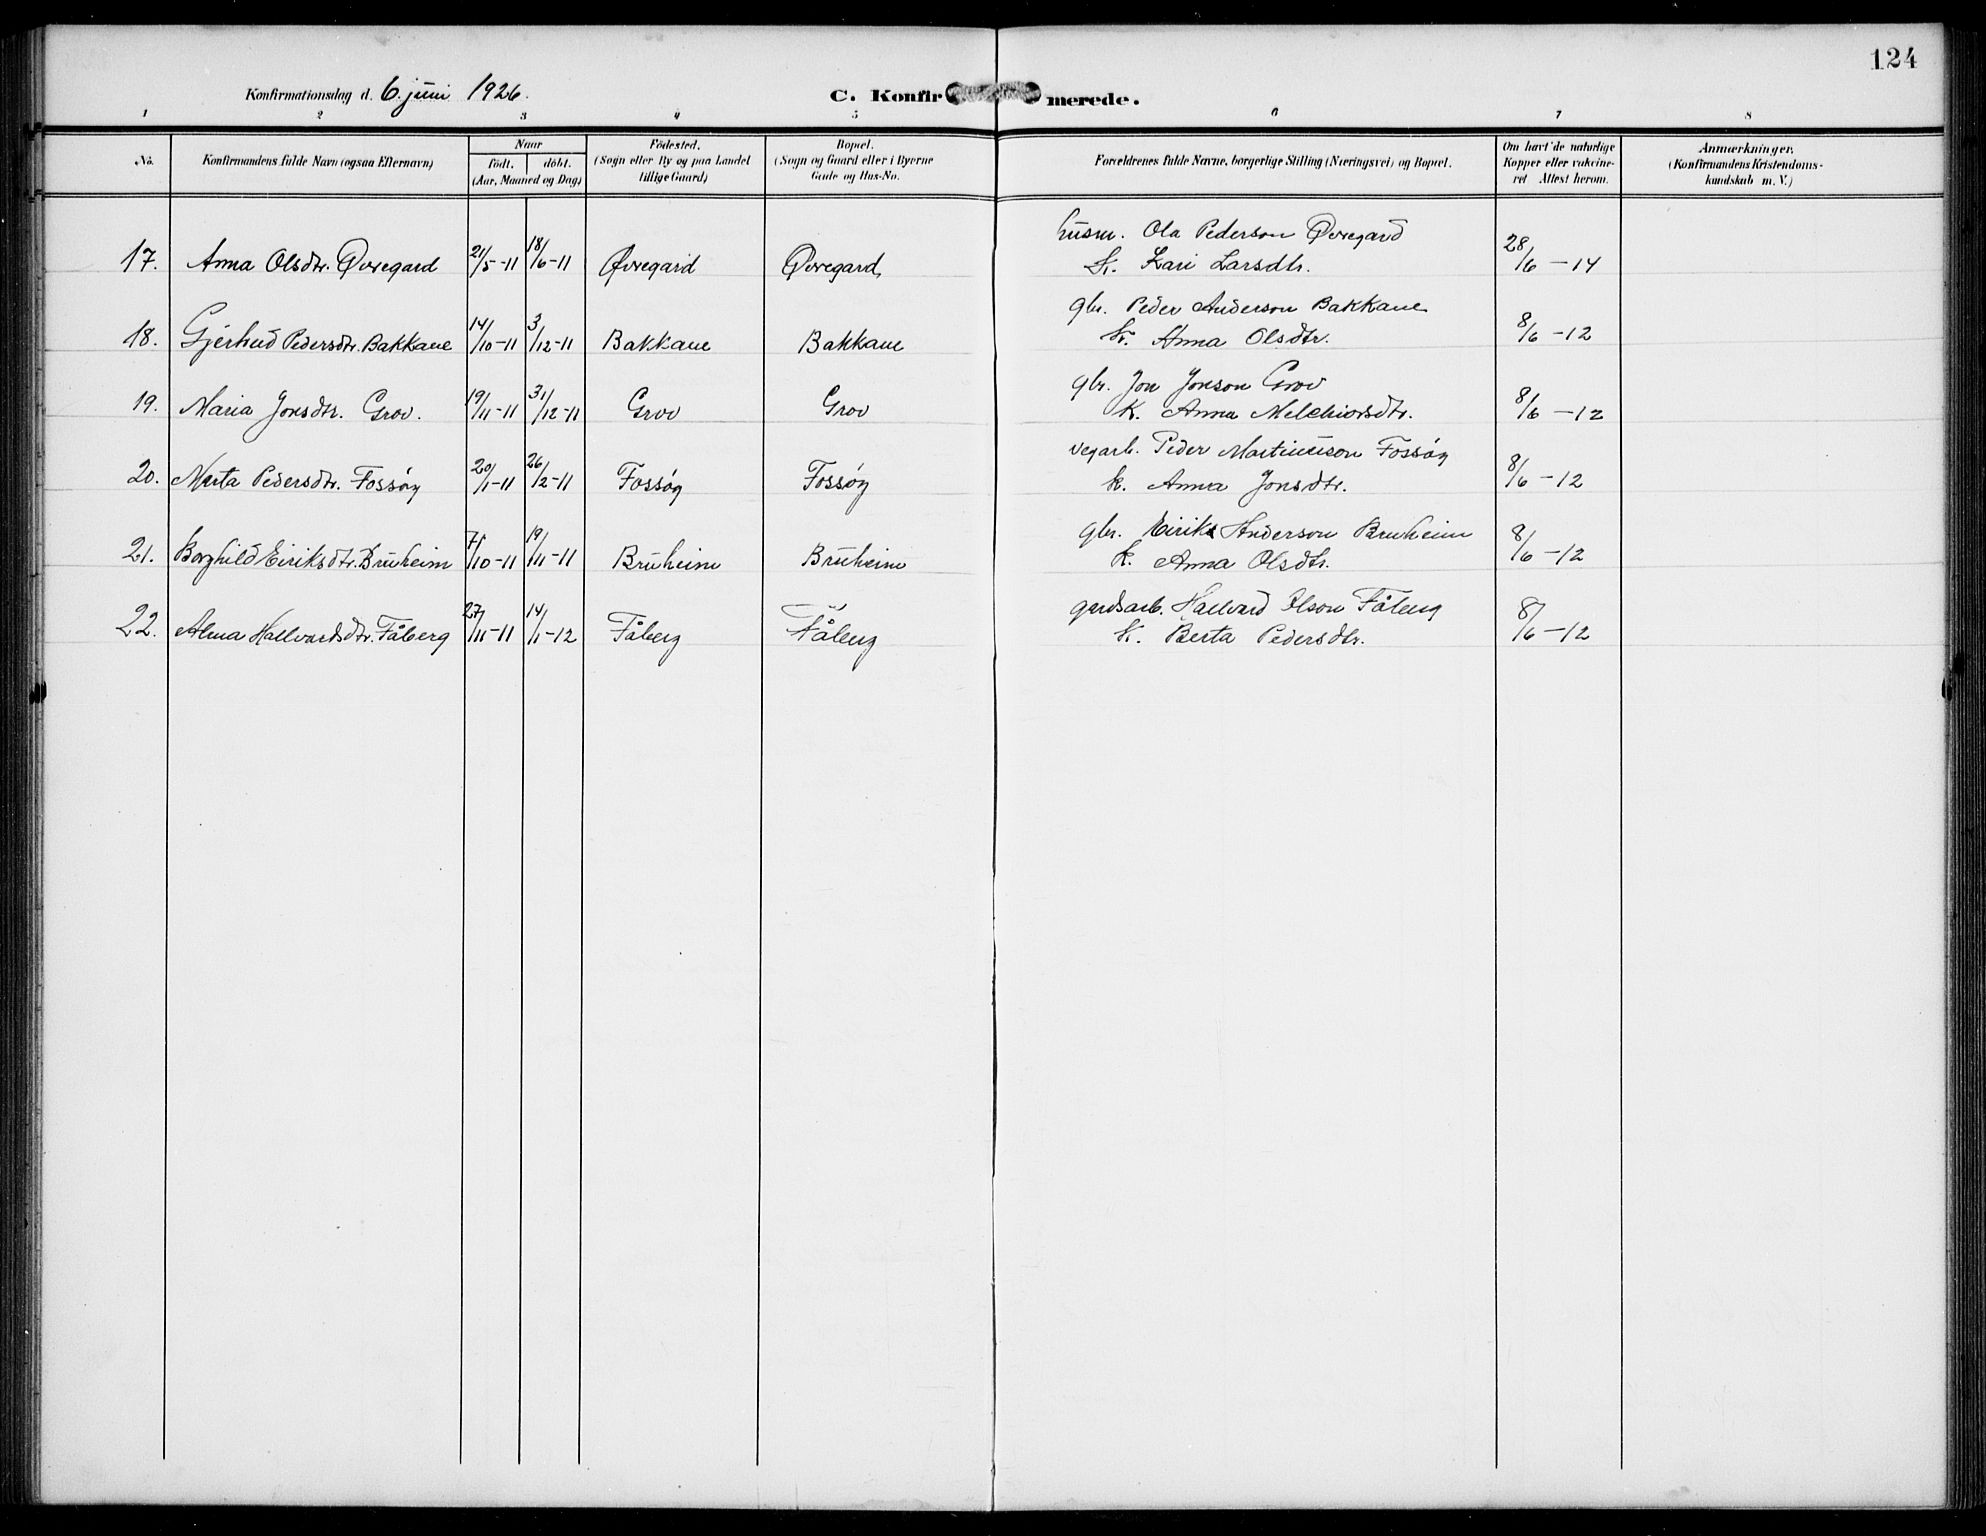 124
Konfirmationsdag d. 6. juni 1926.
C. Konfirmerede.
1 2 3 4 5 6 7 8
No. Konfirmandens fulde Navn (ogsaa Efternavn) Naar födt. döbt. (Aar, Maaned og Dag) Födested. (Sogn eller By og paa Landet tillige Gaard) Bopæl. (Sogn og Gaard eller i Byerne Gade og Hus-No. Forældrenes fulde Navne, borgerlige Stilling (Næringsvei) og Bopæl. Om havt de naturlige Kopper eller vakcineret Attest herom. Anmærkninger. (Konfirmandens Kristendomskundskab m. V.)
husm. Ola Pederson Øvregard
17. Anna Olsdtr. Øvregard 21/5-11 18/6-11 Øvregard Øvregard k. Kari Larsdtr. 28/6-14
gbr. Peder Anderson Bakkane
18. Gjerhud Pedersdtr. Bakkane 14/10-11 3/12-11 Bakkane Bakkane k. Anna Olsdtr. 8/6-12
gbr. Jon Jonson Grov
19. Maria Jonsdtr. Grov. 19/11-11 31/12-11 Grov Grov k. Anna Melchiorsdtr. 8/6-12
vegarb. Peder Martinuson Fossøy
20. Marta Pedersdtr. Fossøy 20/1-11 26/2-11 Fossøy Fossøy k. Anna Jonsdtr. 8/6-12
gbr. Eirik Anderson Bruheim
21. Borghild Eiriksdtr. Bruheim 7/10-11 19/11-11 Bruheim Bruheim k. Anna Olsdtr. 8/6-12
gardsarb. Hallvard Olson Fåberg
22. Alma Hallvardsdtr. Fåberg 27/11-11 14/1-12 Fåberg Fåberg k. Berta Pedersdtr. 8/6-12